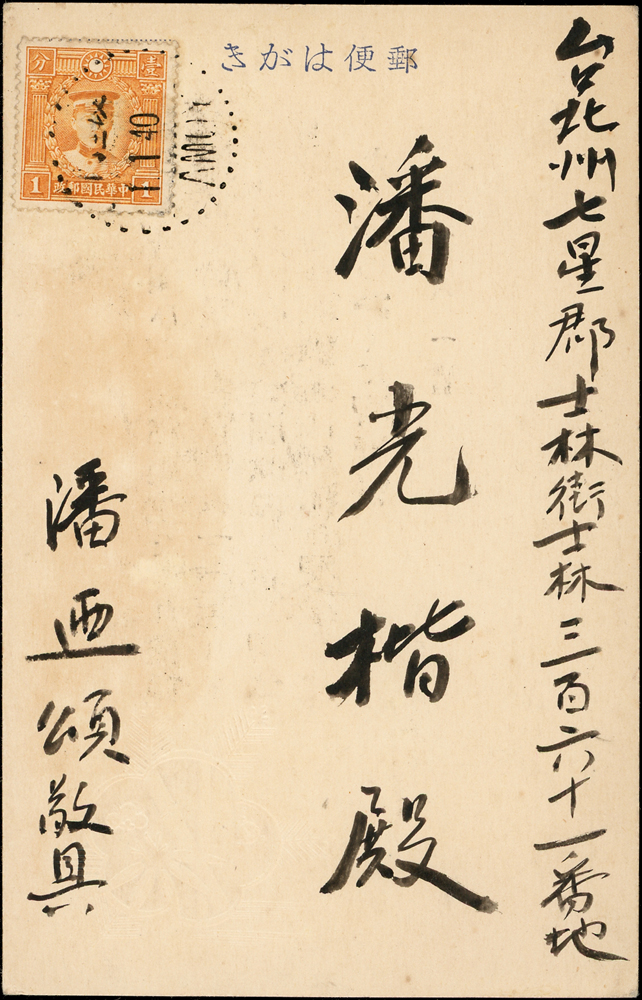 郵便はがき
台北州七星郡士林街士林三百六十一番地
潘光楷殿
潘迺頌敬具
壹 分
中華民國郵政
1 1
1 1 40
AMOY